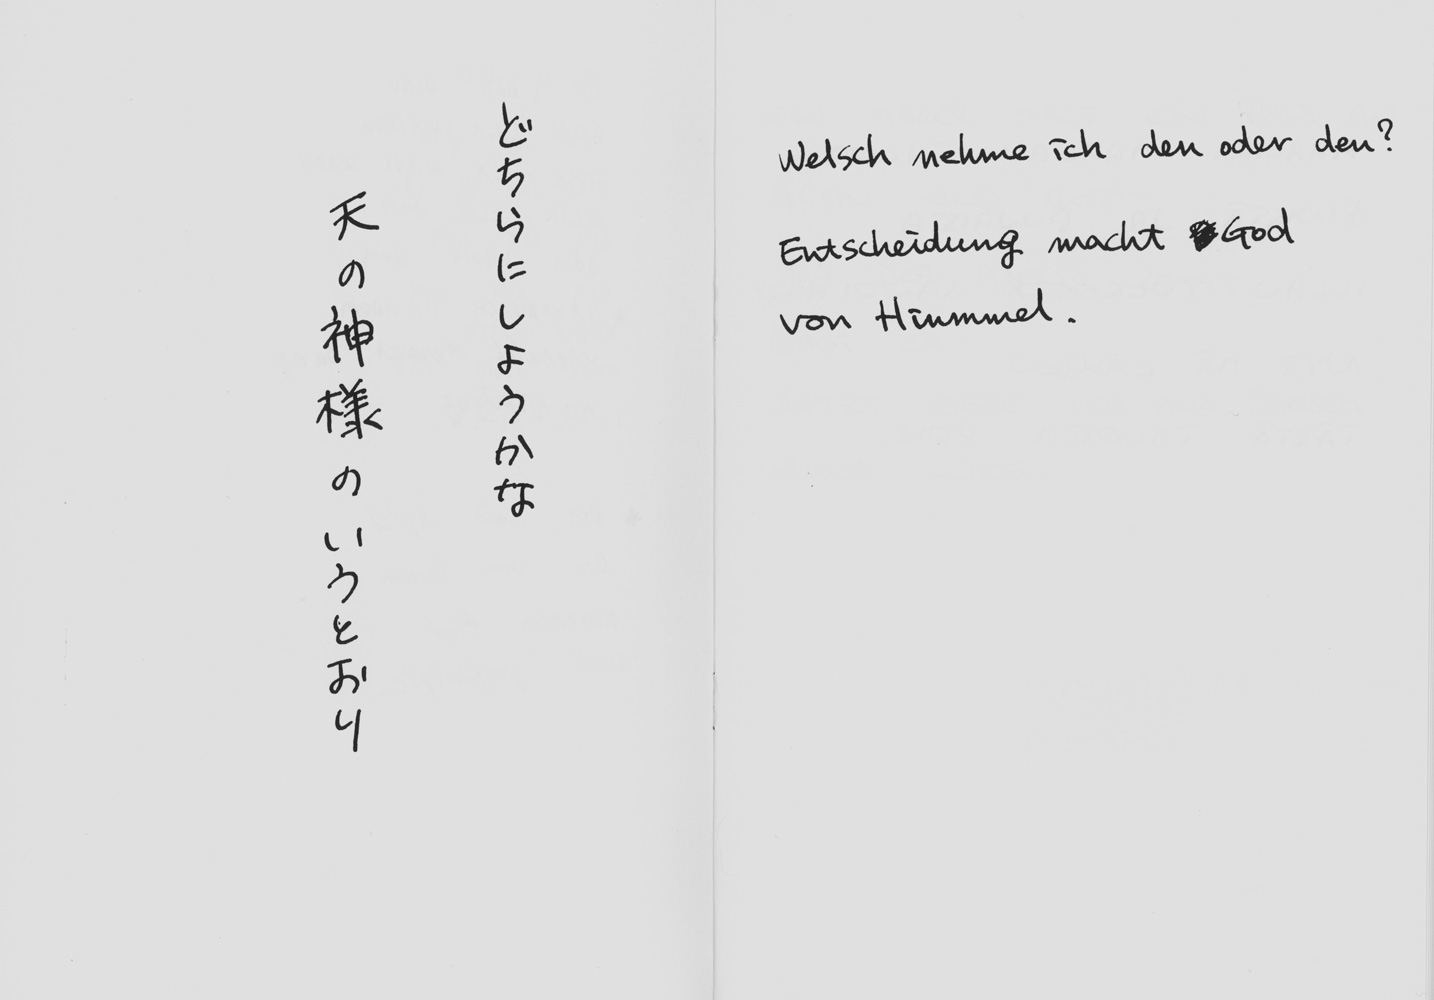 どちらにしようかな
天の神様のいうとおり
Welsch nehme ich den oder den?
Entscheidung macht God
von Himmel.